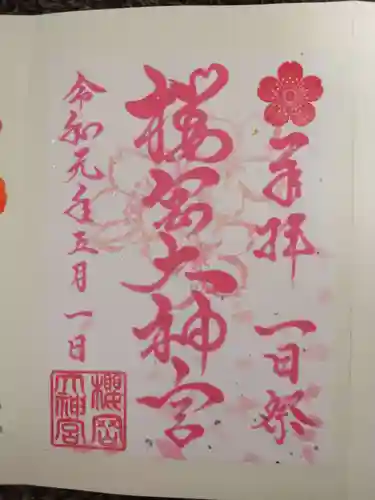 奉拝　一日祭
櫻岡大神宮
令和元年五月一日
櫻岡
大神宮